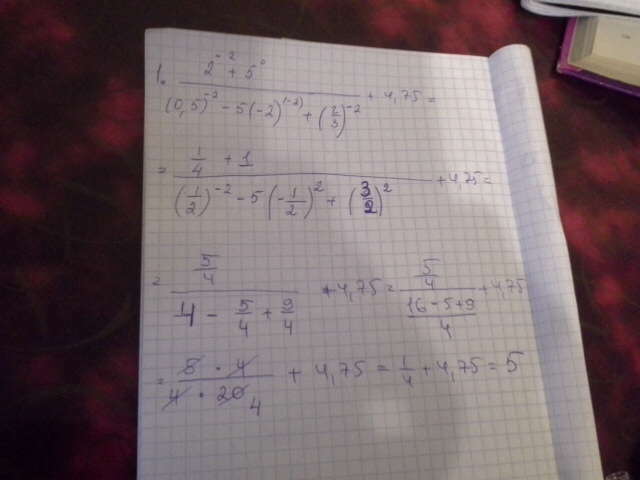 1. (2^-2 + 5^0) / ((0,5)^-2 - 5(-2)^(-2) + (2/3)^-2) + 4,75 =
= (1/4 + 1) / ((1/2)^-2 - 5(-1/2)^2 + (3/2)^2) + 4,75 =
= (5/4) / (4 - 5/4 + 9/4) + 4,75 = (5/4) / ((16-5+9)/4) + 4,75
= (5 · 4) / (4 · 20) 4 + 4,75 = 1/4 + 4,75 = 5